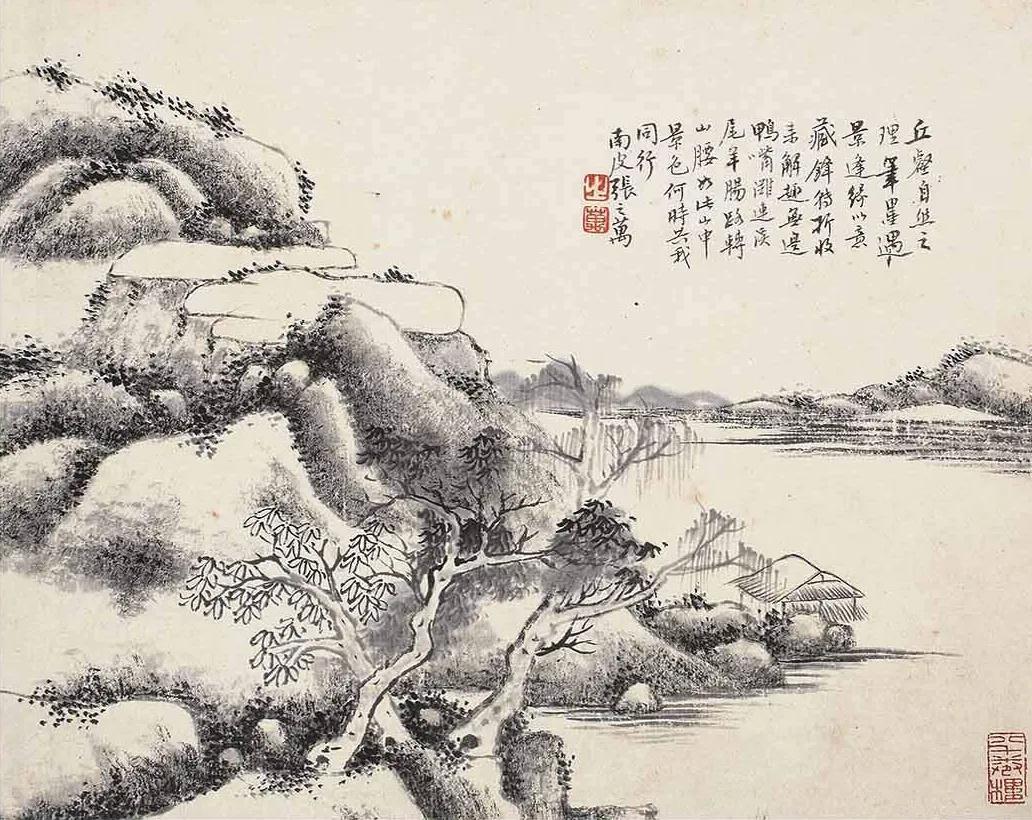 丘壑自然之
理筆墨遇
景逢緣以意
藏鋒折收
來解趣無邊
鴨嘴灘連溪
尾羊腸路轉
山腰如此山中
景色何時共我
同行
南皮張之萬
之
萬